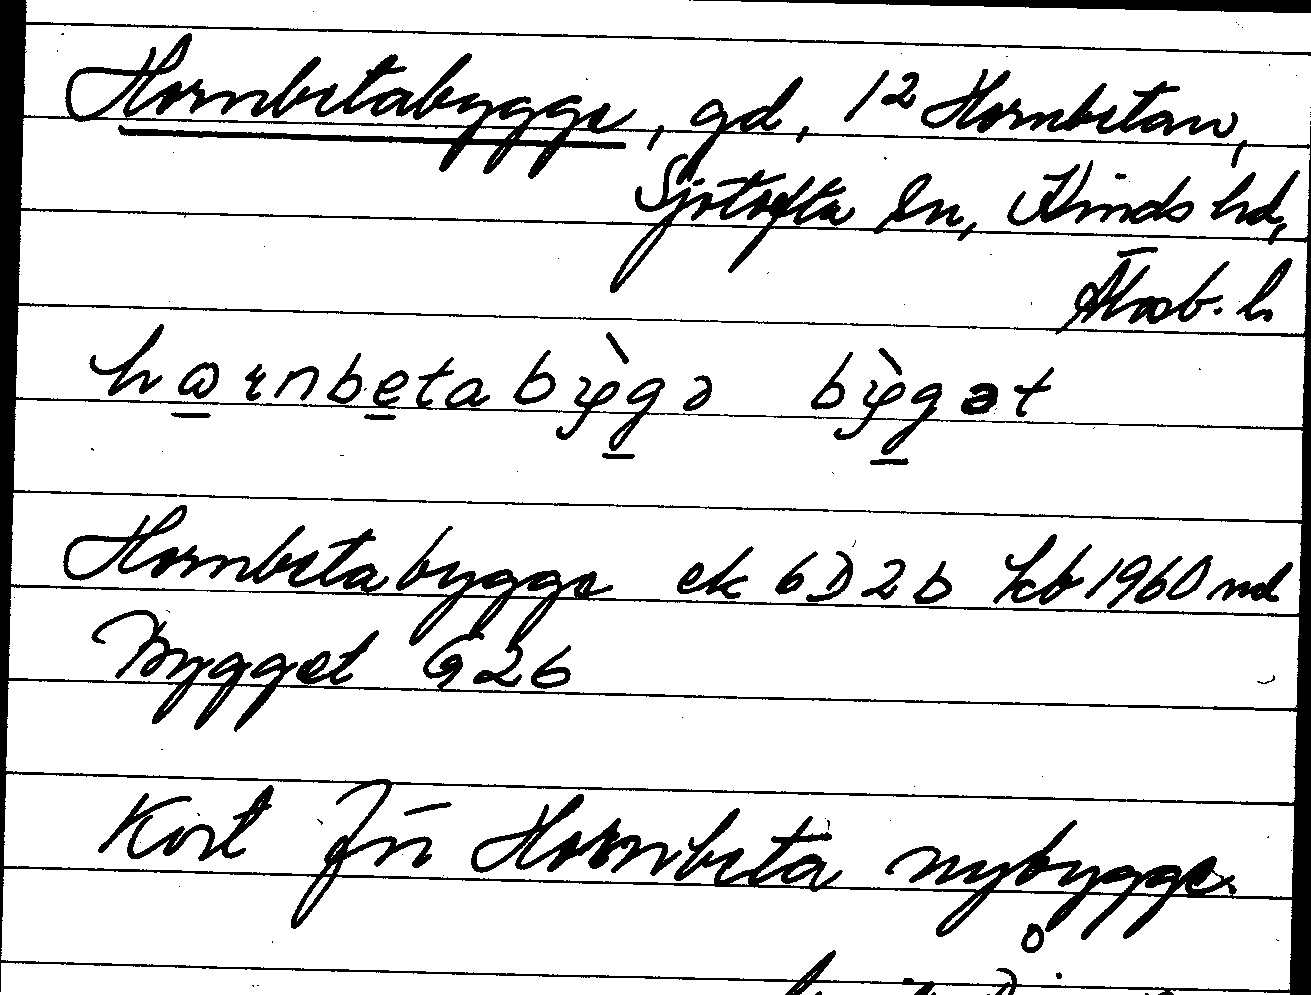 Hornbetabygge, gd, 1² Hornbetan,
Sjötofta sn, Kinds hd,
Älvsb. l.
hωɿnbetabỳgə bỳgət
Hornbetabygge ek 6D2b kb 1960 nd
Bygget G26
Kort för Hornbeta nybygge.